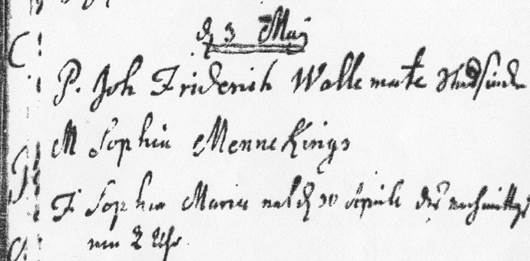 d 3 Maij
P. Joh Friderich Wallemate
M Sophia Mennekings
F Sophia Maria nat d 30 Aprils des nachmittgs
um 2 Uhr